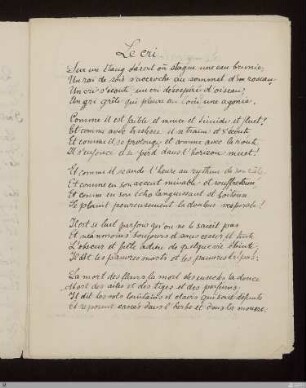 Le cri
Sur un étang désert où stagne une eau brunie,
Un rai de soir s'accroche au sommet d'un roseau,
Un cri s'écoute, un cri désespéré d'oiseau,
Un cri grêle, qui pleure au loin une agonie.
Comme il est faible et mince et timide et fluet!
Et comme avec tristesse il se traîne et s'écoute
Et comme il se prolonge, et comme avec la route
Il s'enfonce et se perd dans l'horizon muet!
Et comme il scande l'heure au rythme de son râle
Et comme en son accent minable et souffreteux
Et comme en son écho languissant et boiteux
Se plaint
la douleur vespérale!
Il est si las parfois qu'on ne le saisit pas
Et néanmoins toujours
et sans trêve, il tinte
L'obscur et frêle adieu de quelque vie éteinte,
Il dit les pauvres morts et les pauvres
La mort des fleurs, la mort des insectes, la douce
Mort des ailes et des tiges et des parfums;
Il dit les vols lointains et clairs qui sont défunts
Et reposent cassés dans l'herbe et dans la mousse.